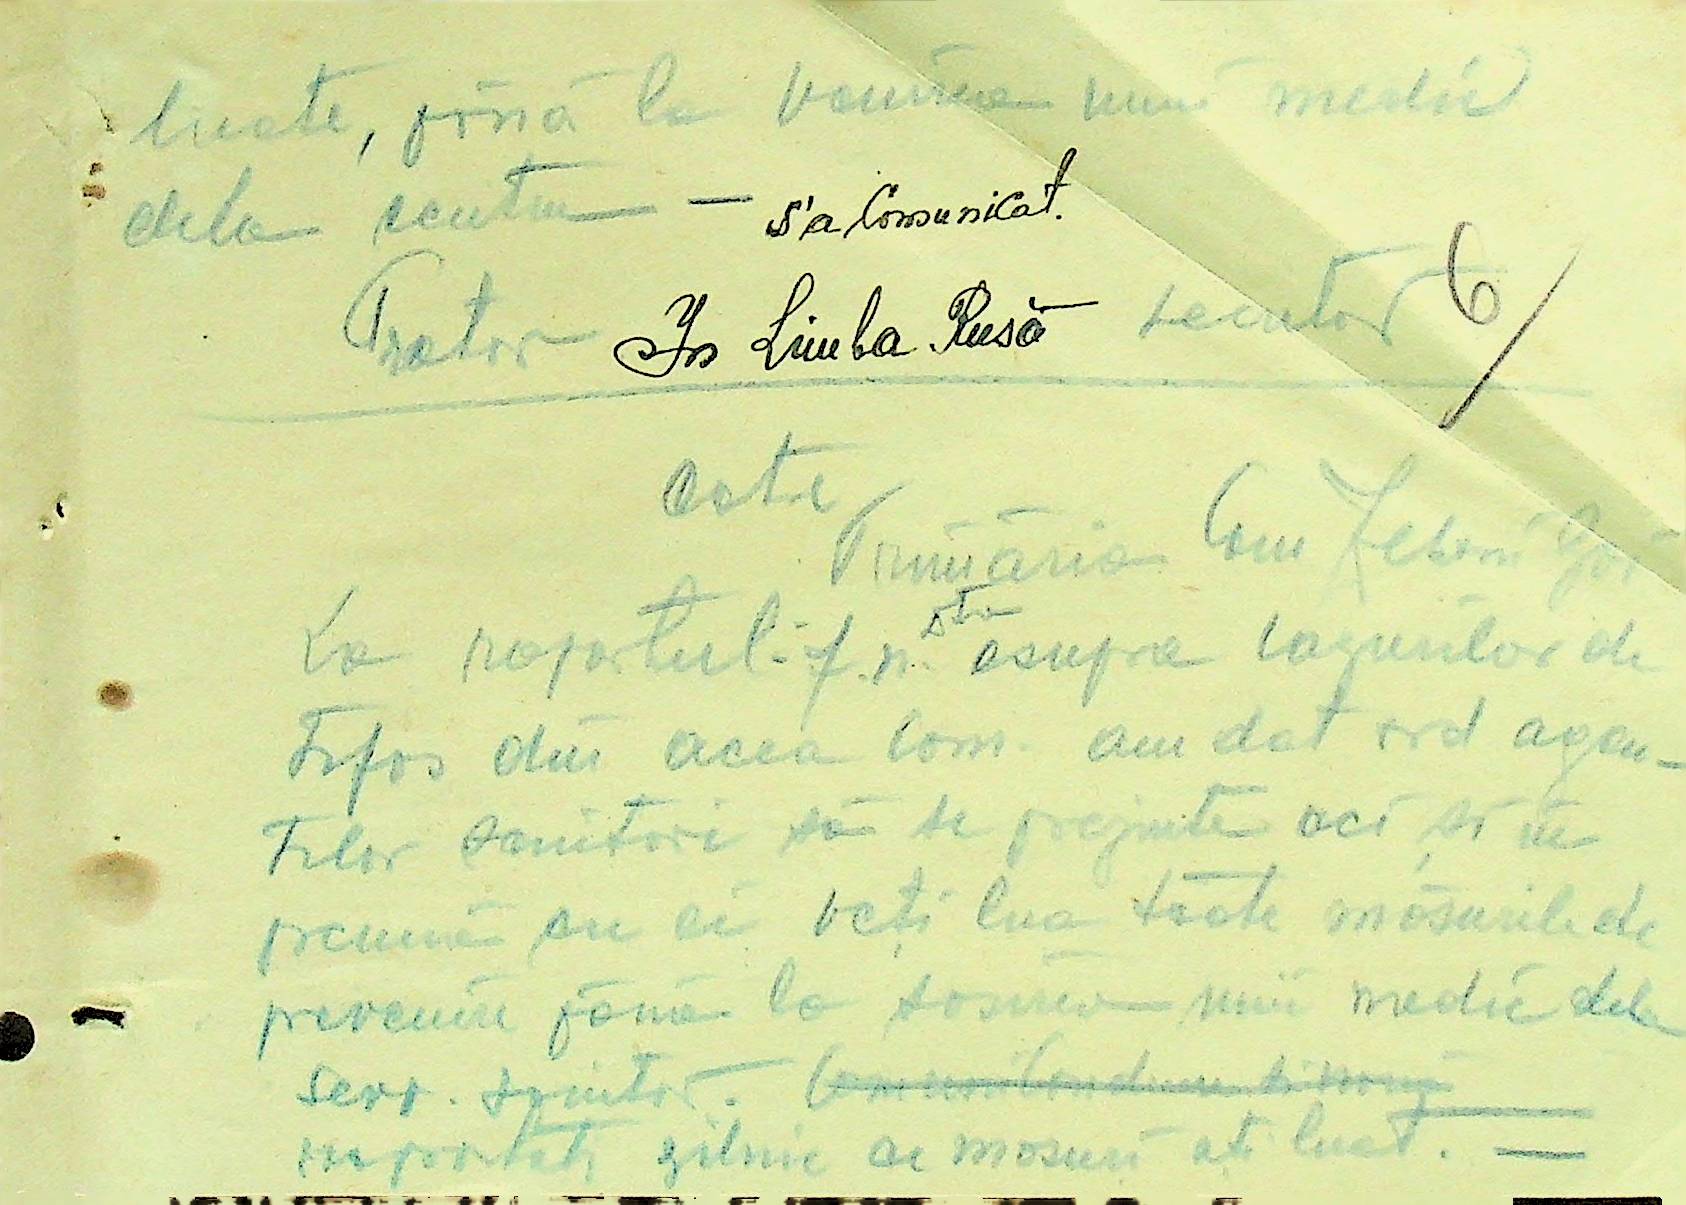 luate, până la venirea unui medic
dela centru — s'a Comunicat.
Pretor In Limba Rusă secretar 6/
Către
Primăria Com
La raportul f. n. asupra cazurilor de
Tifos din acea Com. am dat ord agen-
ților sanitari să se prezinte aci și în
preună cu ei veți lua toate măsurile de
prevenire până la sosirea unui medic dela
Serv. sanitar.
raportați zilnic ce măsuri ați luat. —